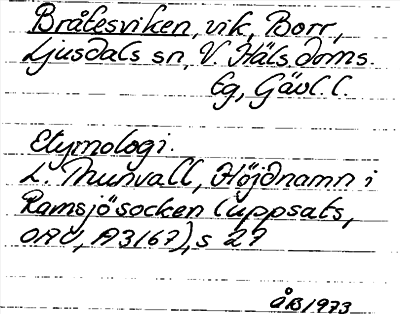 Bråtesviken, vik, Borr,
Ljusdals sn, V. Häls. doms.
lg, Gävl. l.
Etymologi.
L. Thunvall, Höjdnamn i
Ramsjö socken (uppsats,
OAU, A3167), s 27
ÅB 1973